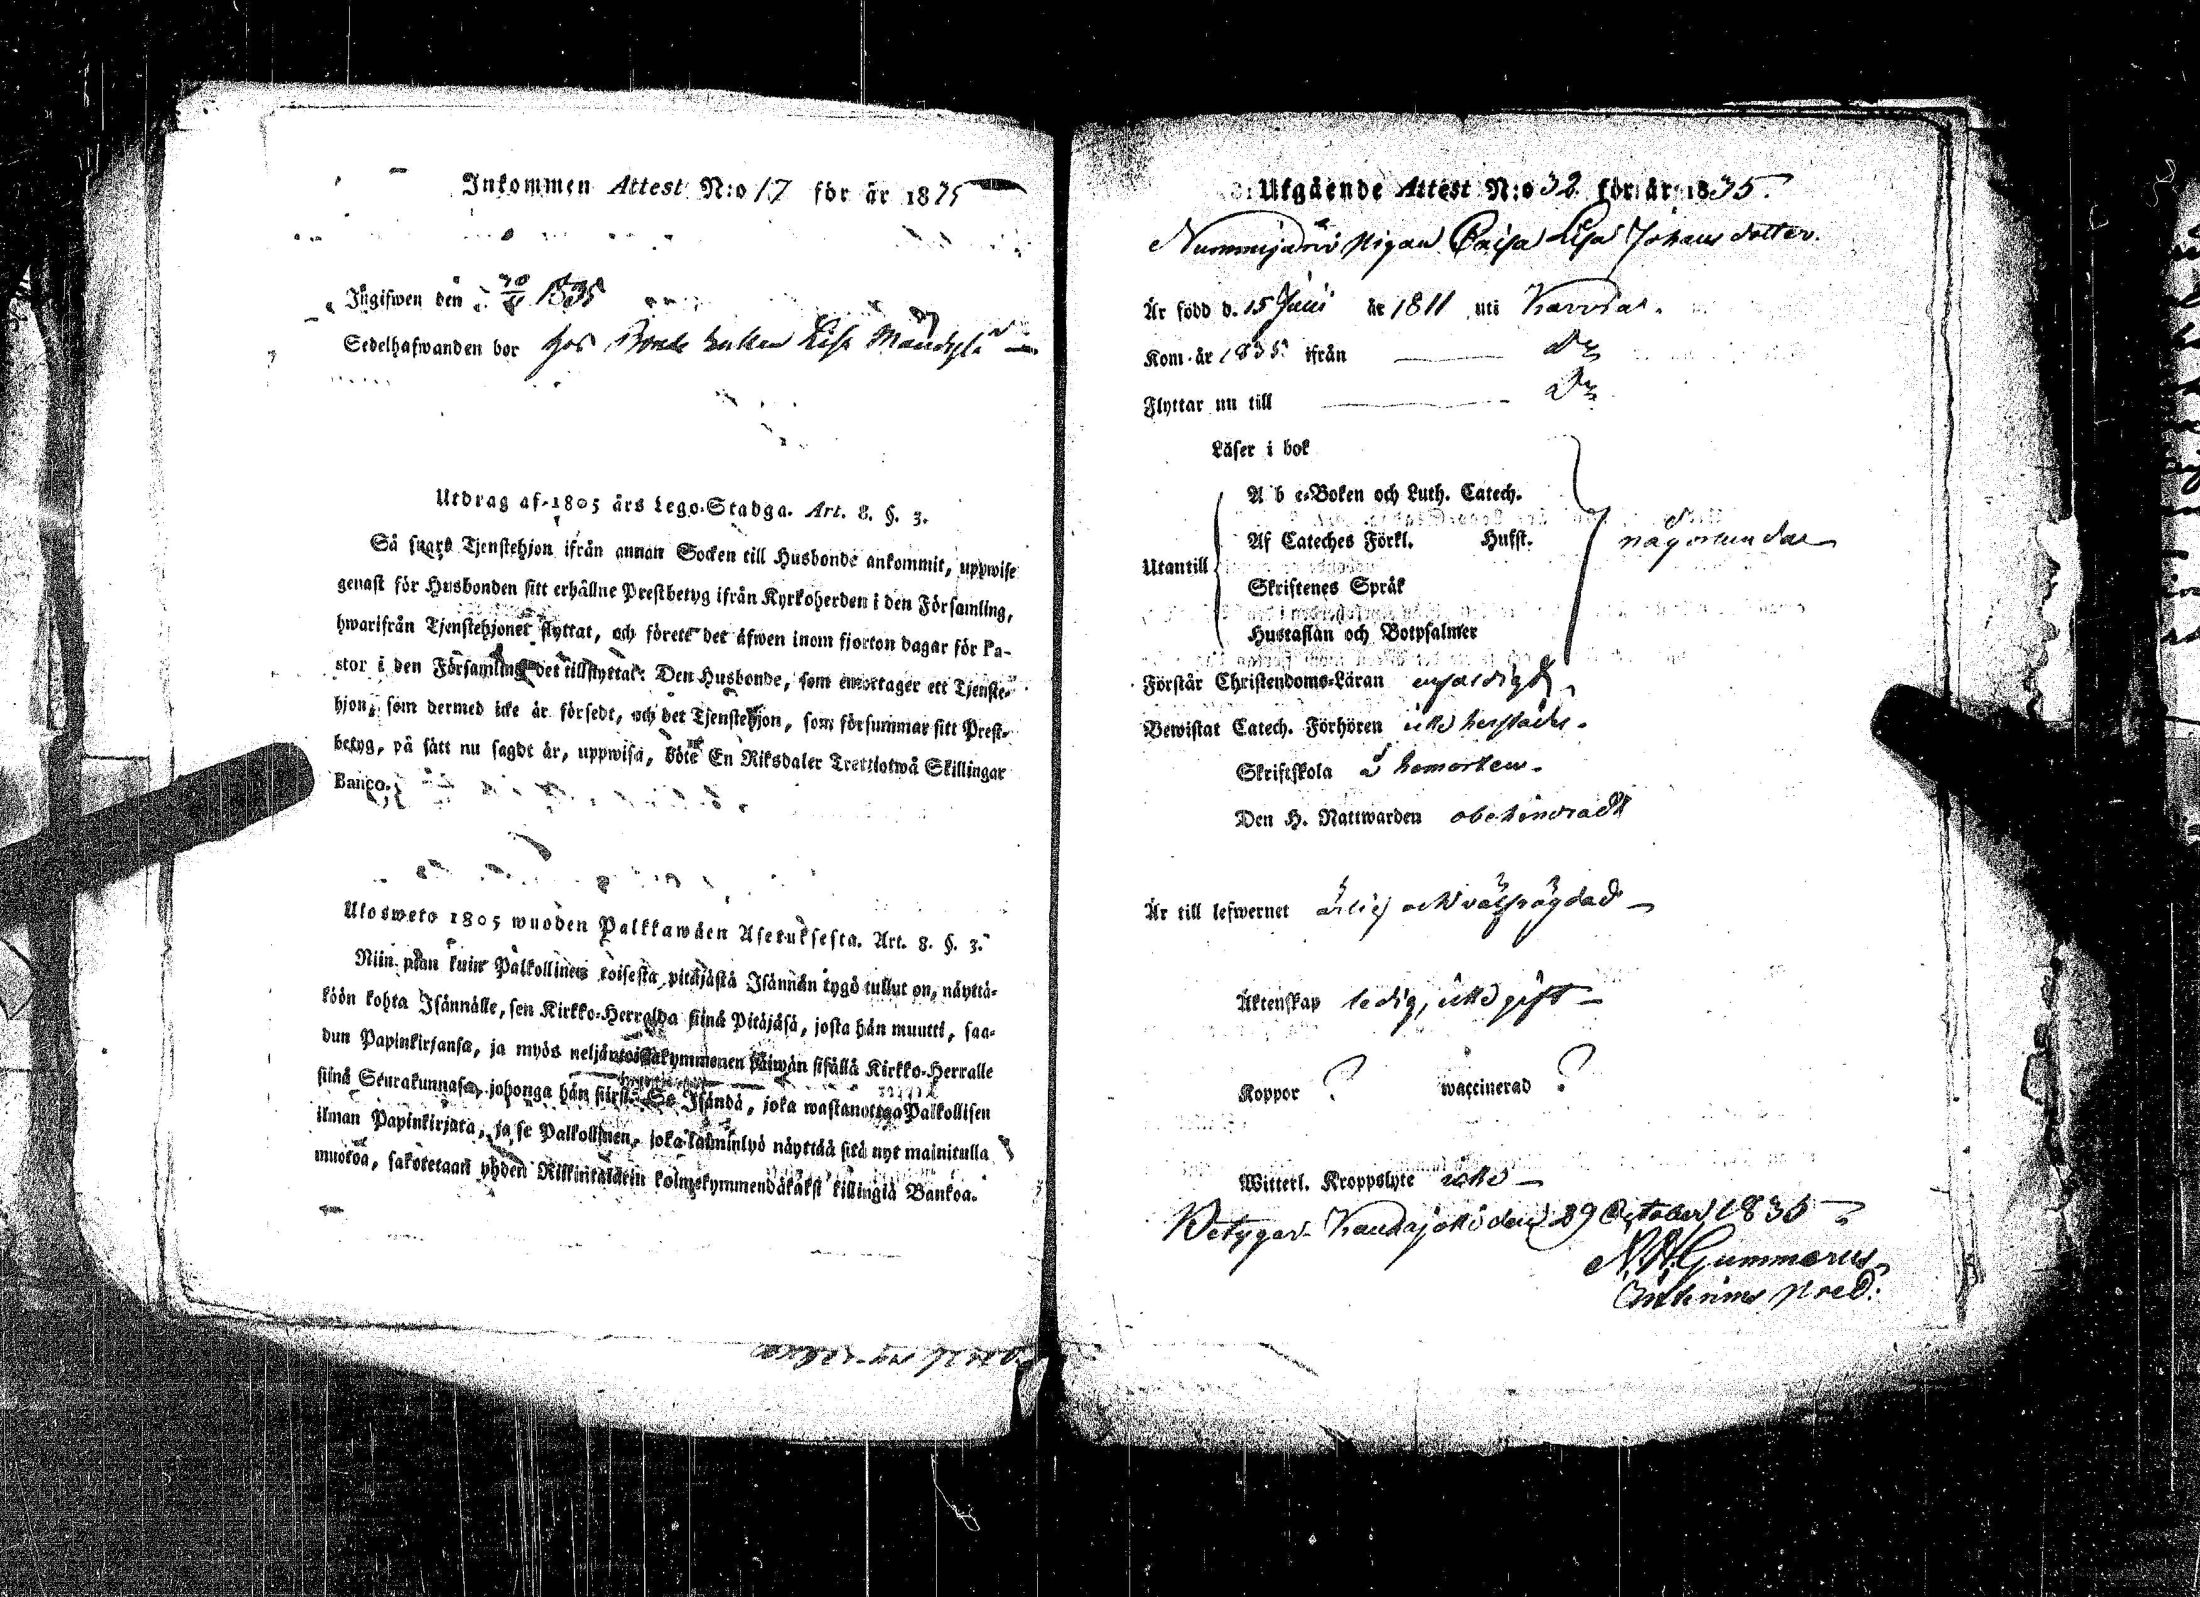 Inkommen Attest N:o 17 för år 1835
Ingifwen den 30/11 1835
Sedelhafwanden bor hos Bonde Enkan Lisa
Utdrag af 1805 års Lego-Stadga. Art. 8. §. 3.
Så snart Tjenstehjon ifrån annan Socken till Husbonde ankommit, uppwise
genast för Husbonden sitt erhållne Prestbetyg ifrån Kyrkoherden i den Församling,
hwarifrån Tjenstehjonet flyttat, och förete det äfwen inom fjorton dagar för Pa-
stor i den Församling det tillflyttat. Den Husbonde, som emottager ett Tjenste-
hjon, som dermed icke är försedt, och det Tjenstehjon, som försummar sitt Prest-
betyg, på sätt nu sagdt är, uppwisa, böte En Riksdaler Trettiotwå Skillingar
Banco.
Ulosweto 1805 wuoden Palkkawäen Asetuksesta. Art. 8. §. 3.
Niin pian kuin Palkollinen toisesta pitäjästä Isännän tygö tullut on, näyttä-
köön kohta Isännälle, sen Kirkko-Herralda siinä Pitäjäsä, josta hän muutti, saa-
dun Papinkirjansa, ja myös neljäntoistakymmenen päiwän sisällä Kirkko-Herralle
siinä Seurakunnasa, johonga hän siirsi. Se Isändä, joka wastanottaa Palkollisen
ilman Papinkirjata, ja se Palkollinen, joka laiminlyö näyttää sitä nyt mainitulla
muotoa, sakotetaan yhden Riikintalarin kolmekymmendäkaksi killingiä Bankoa.
Utgående Attest N:o 32 för år 1835.
Nummijärvi Pigan Caisa Lisa Johans dotter.
Är född d. 15 Junii år 1811 uti Karvia.
Kom år 1835 ifrån — Do
Flyttar nu till — Do
Läser i bok
Utantill
A b c-Boken och Luth. Catech.
Af Cateches Förkl. Husst.
någorlundar
Skriftenes Språk
Hustaflan och Botpsalmer
Förstår Christendoms-Läran enfaldigt
Bewistat Catech. Förhören icke härstädes.
Skriftskola å hemorten.
Den H. Nattwarden obehindradt
Är till lefwernet ärlig och välfrägdad
Äktenskap ledig, icke gift
Koppor ? waccinerad ?
Witterl. Kroppslyte icke
Betygar Kauhajoki den 29 October 1835
N. H. Gummerus
Interims Pred.